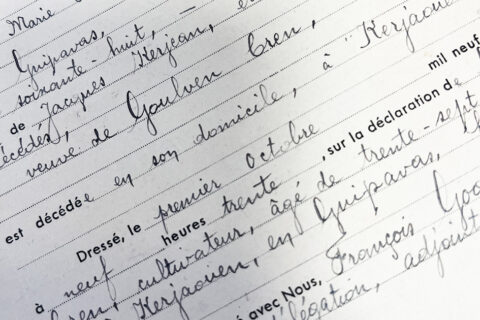 Marie
Guipavas,
soixante-huit, —
de Jacques Kerjean, e
écédés,
veuve de Goulven Cren,
est décédée en son domicile, à "Kerjaouen
mil neuf
Dressé, le premier octobre
à neuf heures trente, sur la déclaration de
cultivateur, âgé de trente-sept
Kerjaouen, en Guipavas,
é avec Nous, François
délégation, adjoint